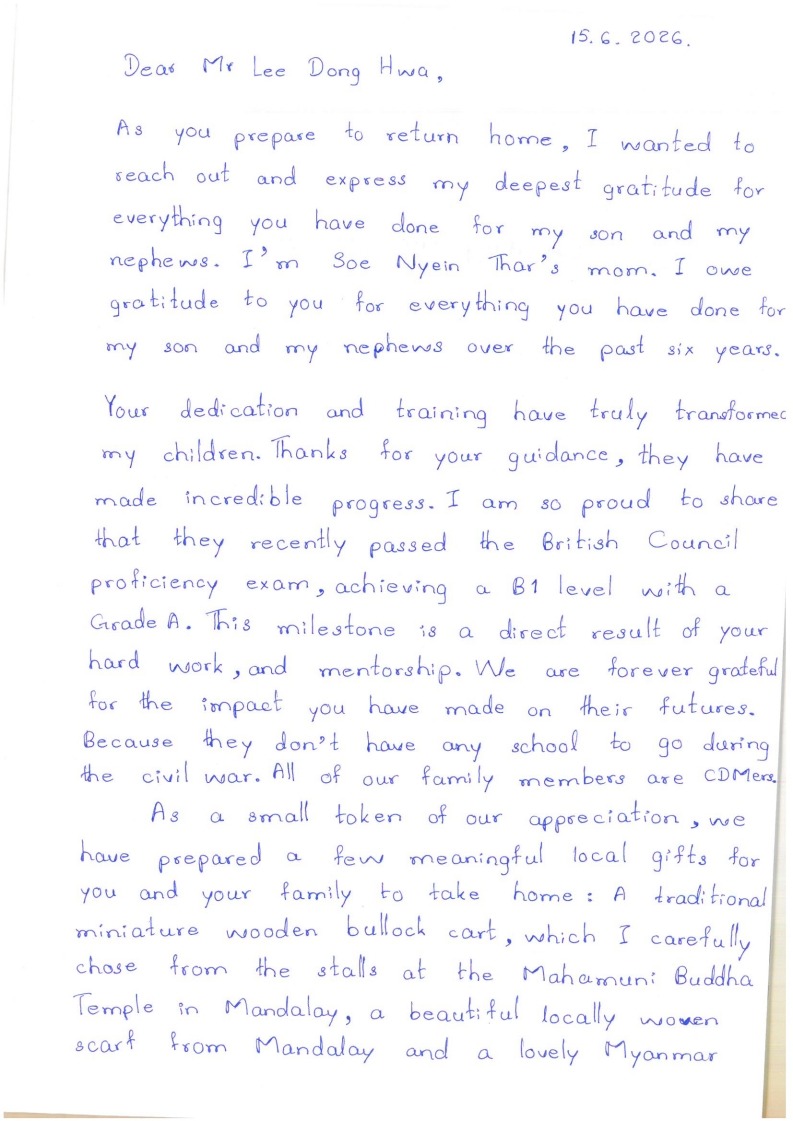 15.6.2026.
Dear Mr Lee Dong Hwa,
As you prepare to return home, I wanted to
reach out and express my deepest gratitude for
everything you have done for my son and my
nephews. I'm Soe Nyein Thar's mom. I owe
gratitude to you for everything you have done for
my son and my nephews over the past six years.
Your dedication and training have truly transformed
my children. Thanks for your guidance, they have
made incredible progress. I am so proud to share
that they recently passed the British Council
proficiency exam, achieving a B1 level with a
Grade A. This milestone is a direct result of your
hard work, and mentorship. We are forever grateful
for the impact you have made on their futures.
Because they don't have any school to go during
the civil war. All of our family members are CDMers.
As a small token of our appreciation, we
have prepared a few meaningful local gifts for
you and your family to take home: A traditional
miniature wooden bullock cart, which I carefully
chose from the stalls at the Mahamuni Buddha
Temple in Mandalay, a beautiful locally woven
scarf from Mandalay and a lovely Myanmar